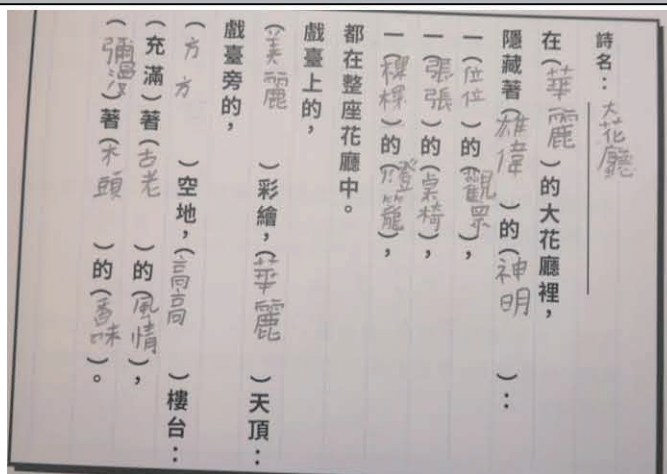 詩名：大花廳
在（華麗）的大花廳裡，
隱藏著（雄偉）的（神明）：
一（位位）的（觀眾），
一（張張）的（桌椅），
一（棵棵）的（燈籠），
都在整座花廳中。
戲臺上的，
（美麗）彩繪，（華麗）天頂：
戲臺旁的，
（方方）空地，（高高）樓台：
（充滿）著（古老）的（風情），
（彌漫）著（木頭）的（香味）。